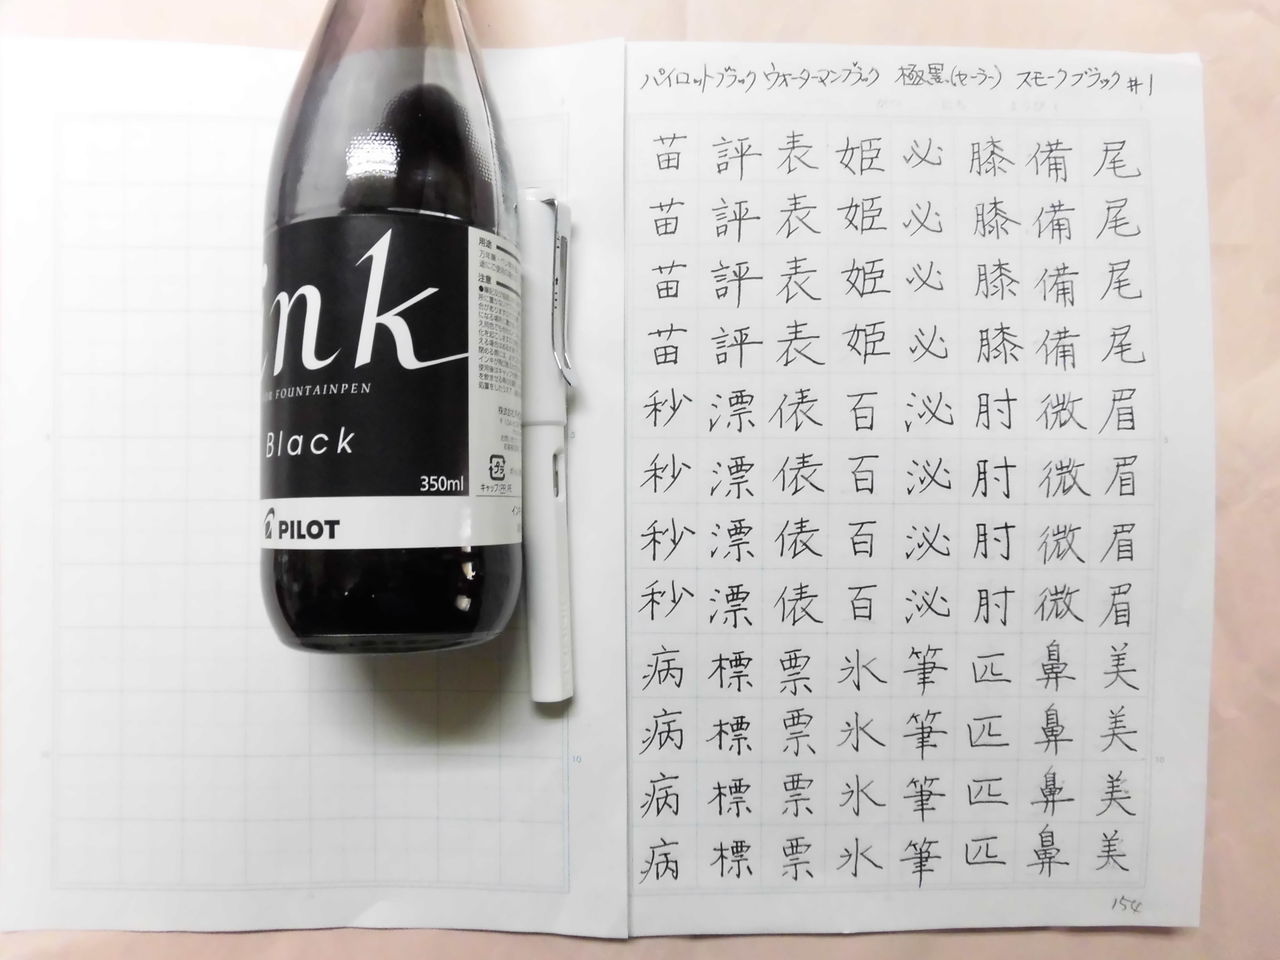 パイロットブラック ウォーターマンブラック 極黒(セーラー) スモークブラック #1
苗 評 表 姫 必 膝 備 尾
苗 評 表 姫 必 膝 備 尾
苗 評 表 姫 必 膝 備 尾
苗 評 表 姫 必 膝 備 尾
秒 漂 俵 百 泌 肘 微 眉
秒 漂 俵 百 泌 肘 微 眉
秒 漂 俵 百 泌 肘 微 眉
秒 漂 俵 百 泌 肘 微 眉
病 標 票 氷 筆 匹 鼻 美
病 標 票 氷 筆 匹 鼻 美
病 標 票 氷 筆 匹 鼻 美
病 標 票 氷 筆 匹 鼻 美
154
ink
FOUNTAINPEN
Black
350ml
PILOT
用途
注意
キャップ:PP,PE
5
10
5
10